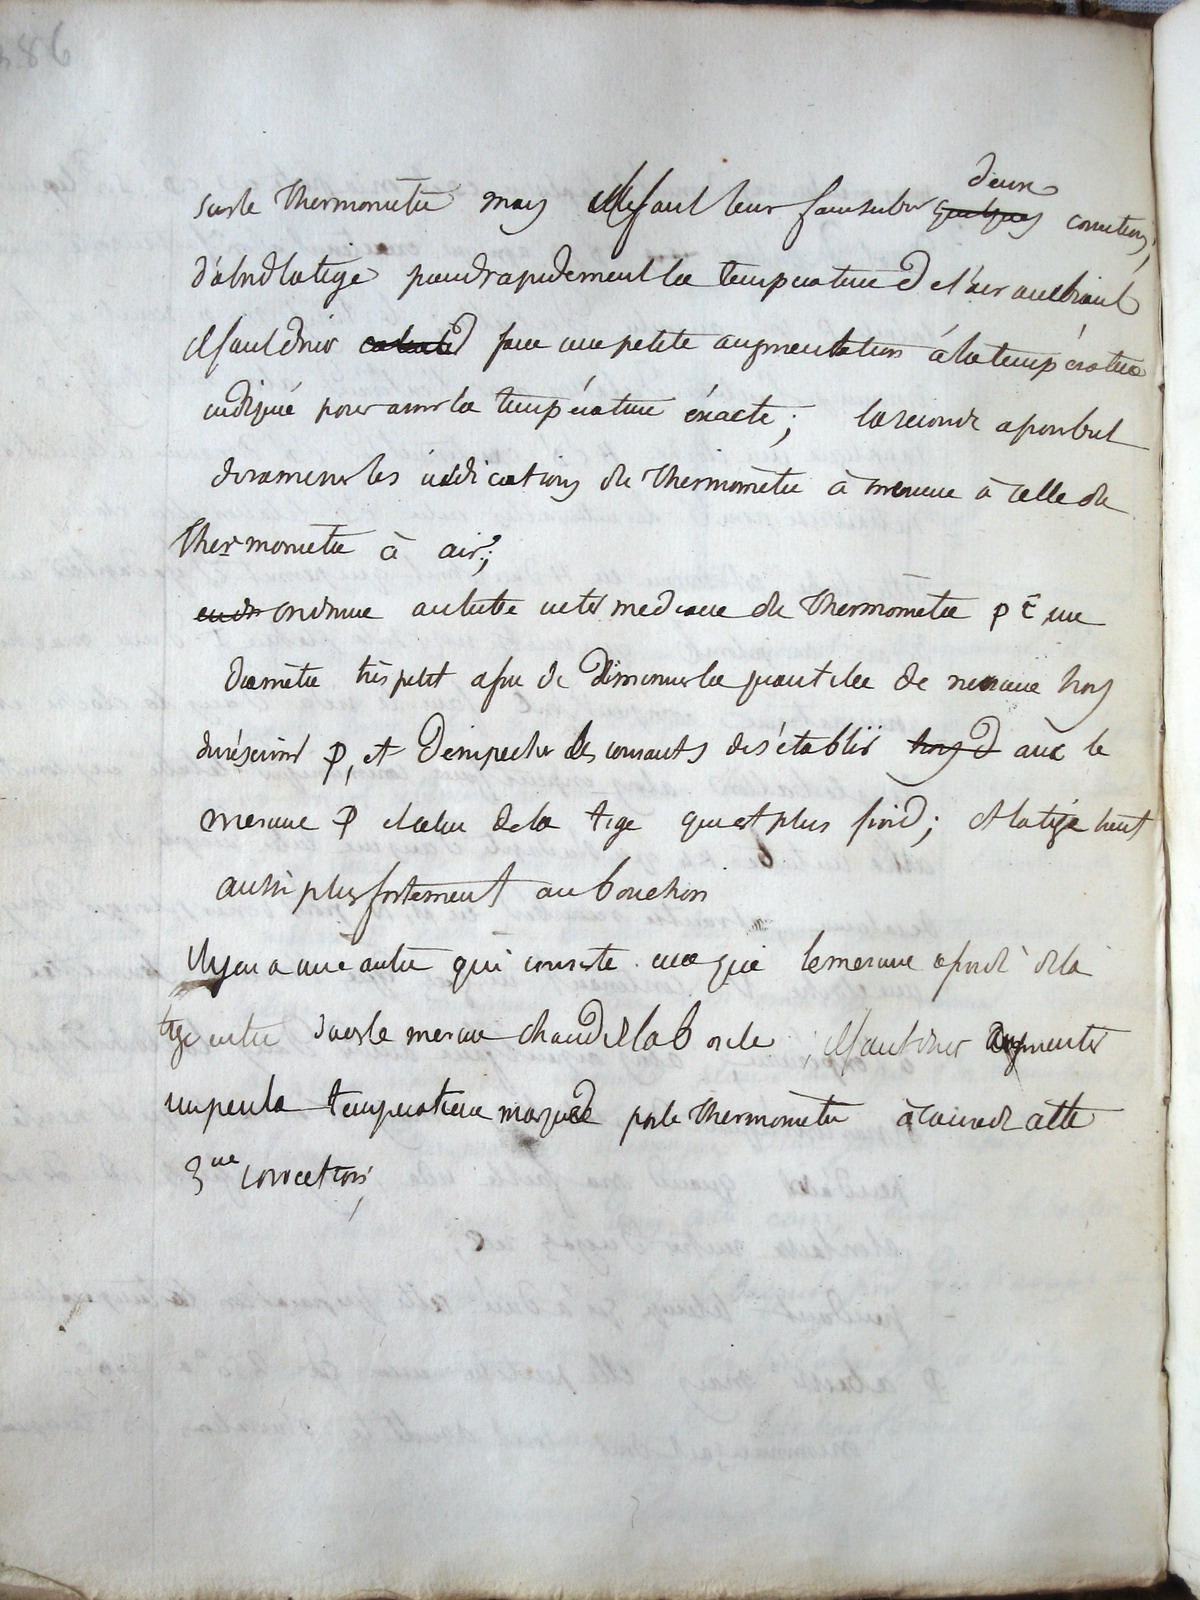 deux
sur le thermometre mais il faut leur faire subir quelques corrections,
d'abord la tige prend rapidement la temperature de l'air ambiant
il faut donc faire une petite augmentation à la température
indiqué pour avoir la température éxacte; la seconde a pour but
de ramener les indications du thermomètre à mercure à celle du
thermometre à air;
on donne au tube intermediaire du thermomètre p C une
diamètre très petit afin de diminuer la quantitée de mercure hors
du réservoir p, et d'empecher des courants de s'établir hors d avec le
mercure p et celui de la tige qui est plus froid; et la tige tient
aussi plus fortement au bouchon
Il y en a une autre qui consiste en ce que le mercure froid de la
tige entre dans le mercure chaud de la boule, il faut donc augmenter
un peu la temperature marquée par le thermomètre à cause de cette
3me correction,